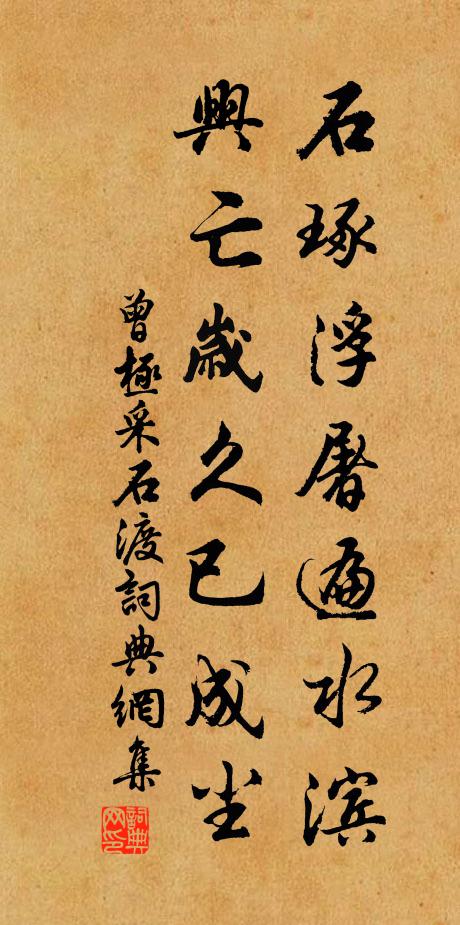 石琢浮屠遍水滨
興亡歲久已成尘
曾極采石渡詞典網集
詞典网印